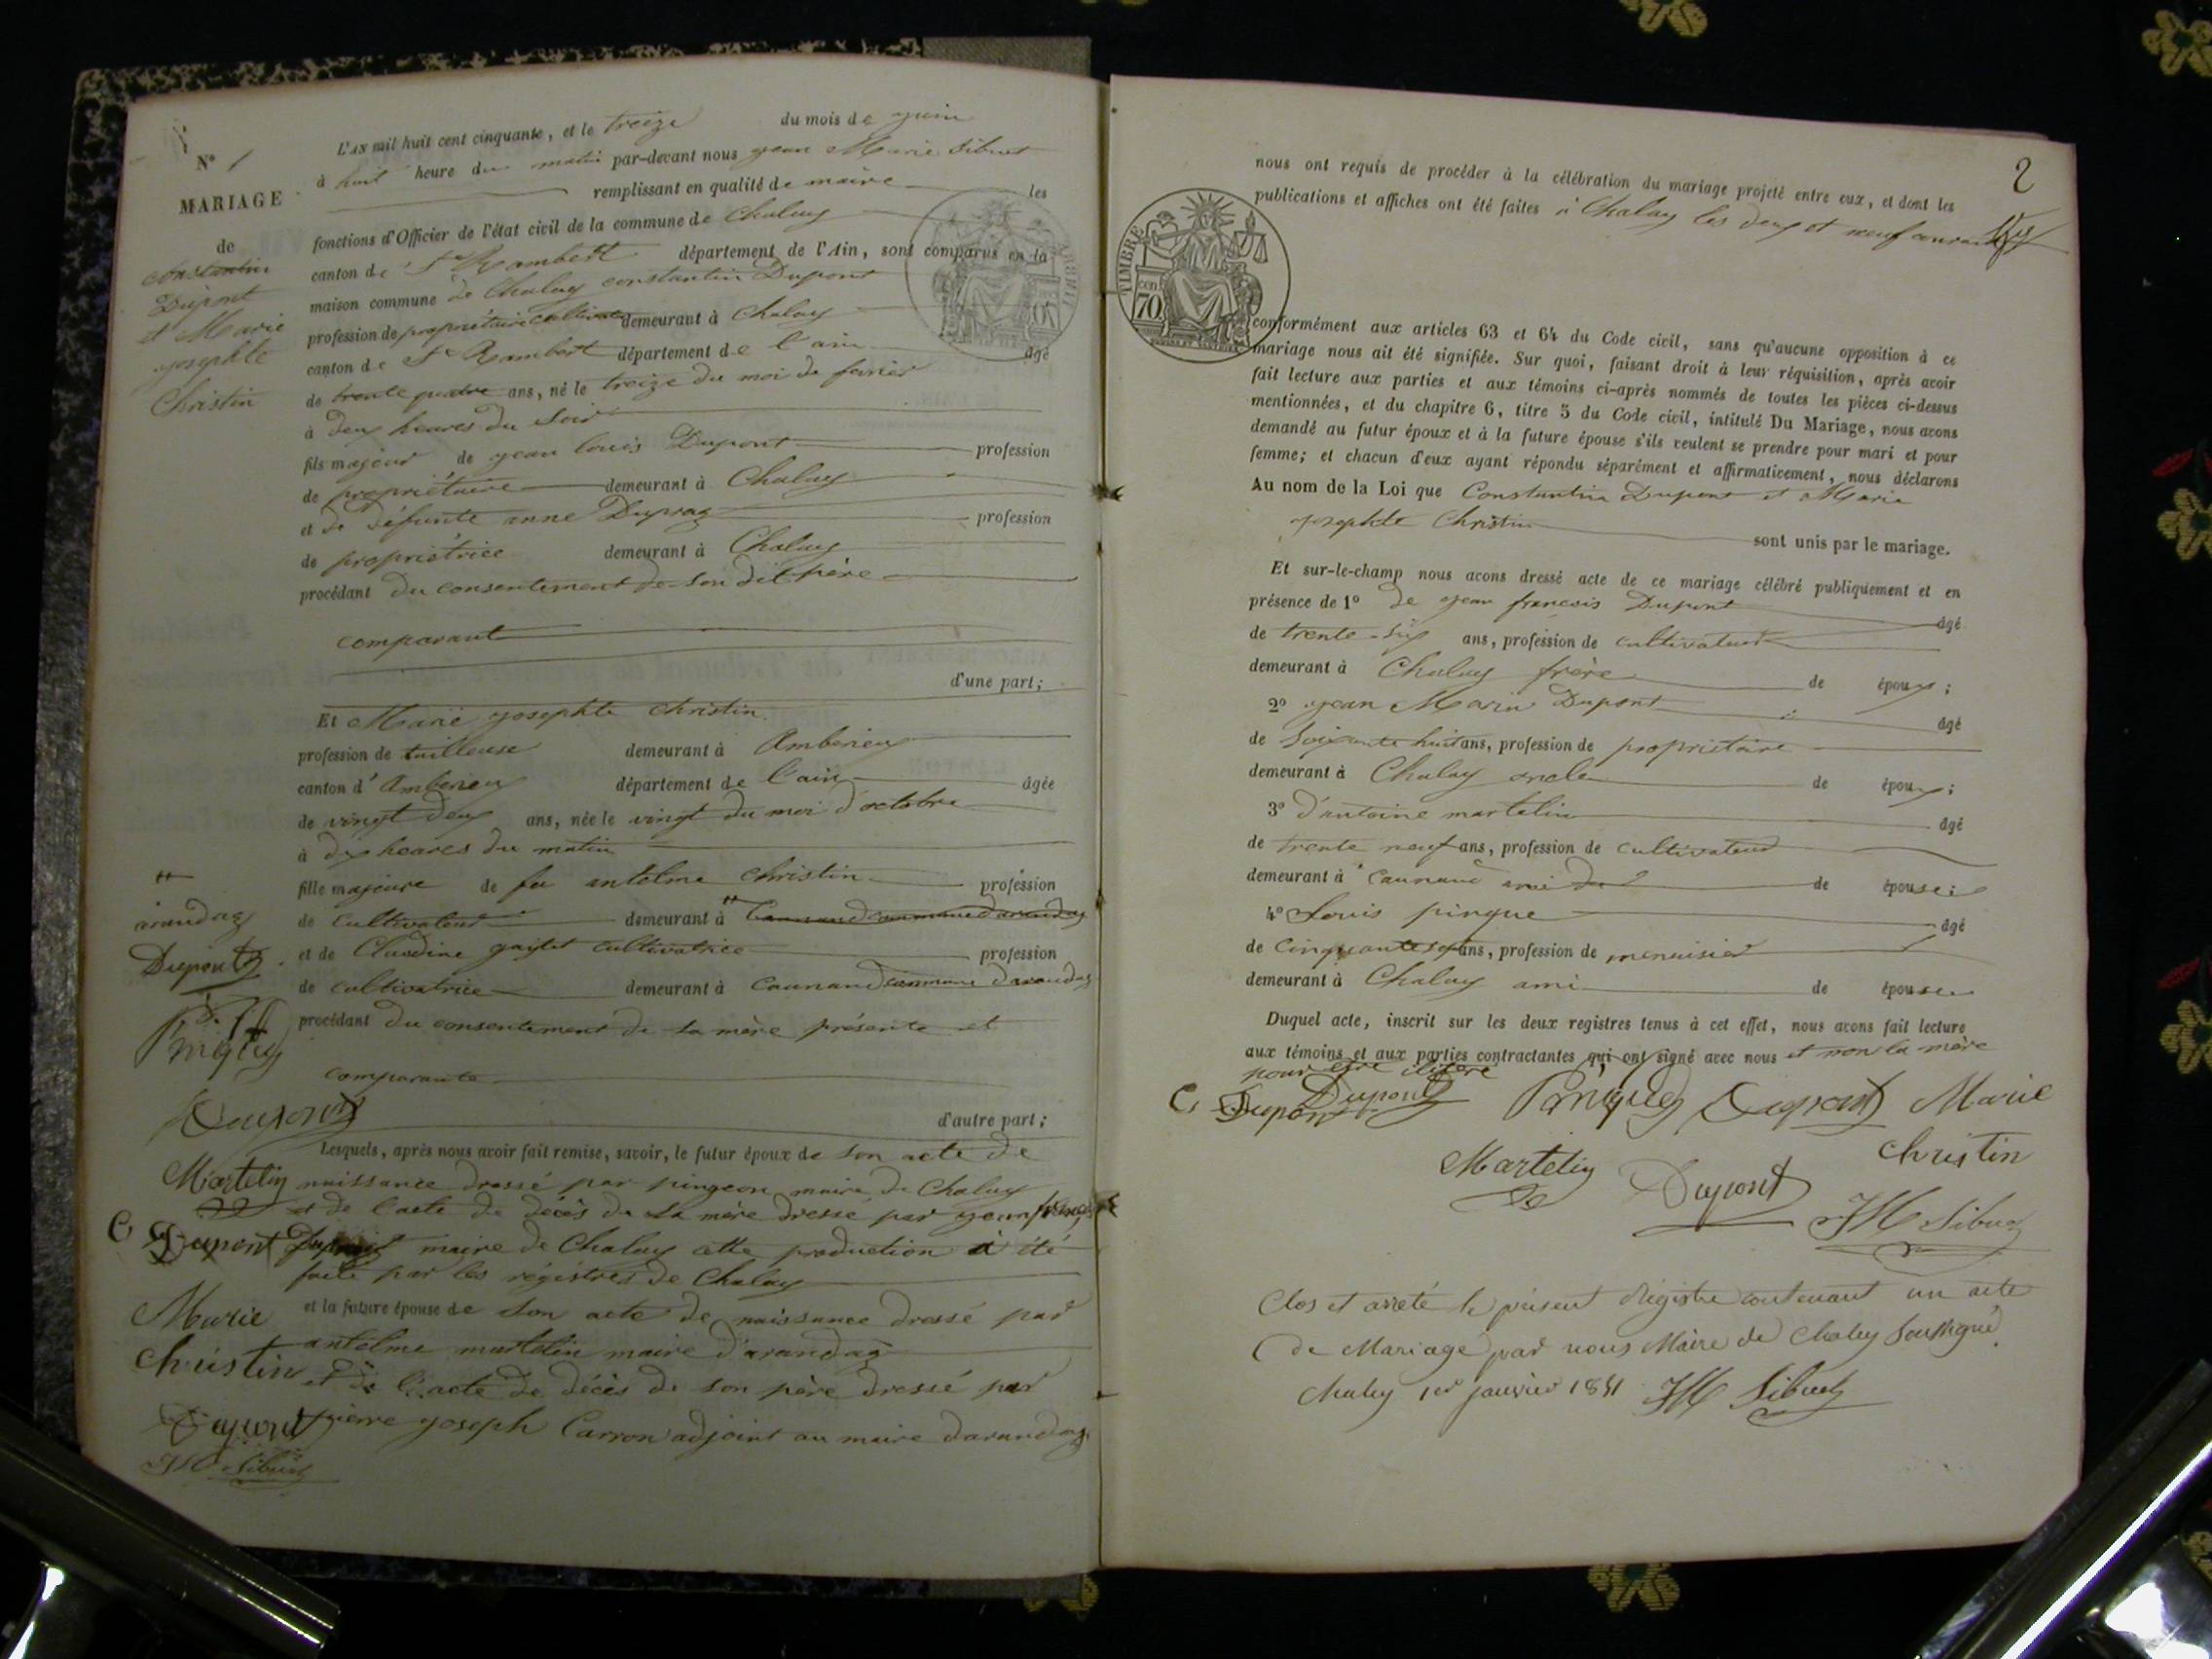 N° 1
MARIAGE
de
Constantin
Dupont
et Marie
josephte
Christin
L'AN mil huit cent cinquante, et le treize du mois de juin
à huit heure du matin par-devant nous jean Marie Sibuet
remplissant en qualité de maire les
fonctions d'Officier de l'état civil de la commune de Chaley
canton de St Rambert département de l'Ain, sont comparus en la
maison commune de Chaley constantin Dupont
profession de propriétaire cultivateur demeurant à Chaley
canton de St Rambert département de l'ain âgé
de trente quatre ans, né le treize du moi de fevrier
à deux heures du soir
fils majeur de jean louis Dupont profession
de propriétaire demeurant à Chaley
et de défunte anne Dupraz profession
de propriétrice demeurant à Chaley
procédant du consentement de son dit père
comparant
d'une part;
Et Marie josephte christin
profession de tailleuse demeurant à Amberieu
canton d'Amberieu département de l'ain âgée
de vingt deux ans, née le vingt du moi d'octobre
à dix heares du matin
fille majeure de feu antelme christin profession
de cultivateur demeurant à Caunand commune d'arandaz
et de Claudine gaillet cultivatrice profession
de cultivatrice demeurant à Caunand commune d'arandaz
procédant du consentement de sa mère présente et
comparante
d'autre part;
arandaz
Dupont
Pingue
Dupont
Martelin
C. Dupont
Marie
christin
Dupont
JM Sibuet
Lesquels, après nous avoir fait remise, savoir, le futur époux de son acte de
naissance dressé par pingeon maire de Chaley
et de l'acte de décès de sa mère dressé par jean françois
maire de Chaley cette production a été
faite par les régistres de Chaley
et la future épouse de son acte de naissance dressé par
antelme martelin maire d'arandaz
et de l'acte de décès de son père dressé par
pierre joseph Carron adjoint au maire d'arandaz
2
TIMBRE
70
nous ont requis de procéder à la célébration du mariage projeté entre eux, et dont les
publications et affiches ont été faites à Chaley les deux et neuf courant
conformément aux articles 63 et 64 du Code civil, sans qu'aucune opposition à ce
mariage nous ait été signifiée. Sur quoi, faisant droit à leur réquisition, après avoir
fait lecture aux parties et aux témoins ci-après nommés de toutes les pièces ci-dessus
mentionnées, et du chapitre 6, titre 5 du Code civil, intitulé Du Mariage, nous avons
demandé au futur époux et à la future épouse s'ils veulent se prendre pour mari et pour
femme; et chacun d'eux ayant répondu séparément et affirmativement, nous déclarons
Au nom de la Loi que Constantin Dupont et Marie
josephte Christin
sont unis par le mariage.
Et sur-le-champ nous avons dressé acte de ce mariage célébré publiquement et en
présence de 1° de jean francois Dupont âgé
de trente-six ans, profession de cultivateur
demeurant à Chaley frère de époux;
2° jean Marie Dupont âgé
de soixante huit ans, profession de propriétaire
demeurant à Chaley oncle de époux;
3° d'antoine martelin âgé
de trente neuf ans, profession de cultivateur
demeurant à Caunand ami de épouse;
4° Louis pingue âgé
de cinquante sept ans, profession de menuisier
demeurant à Chaley ami de épouse
Duquel acte, inscrit sur les deux registres tenus à cet effet, nous avons fait lecture
aux témoins et aux parties contractantes qui ont signé avec nous et non la mère
pour être illitéré
C. Dupont Dupont Pingue Dupont Marie
christin
Martelin Dupont JM Sibuet
Clos et arreté le présent Régistre contenant un acte
de Mariage par nous Maire de Chaley Soussigné.
Chaley 1er janvier 1851 JM Sibuet